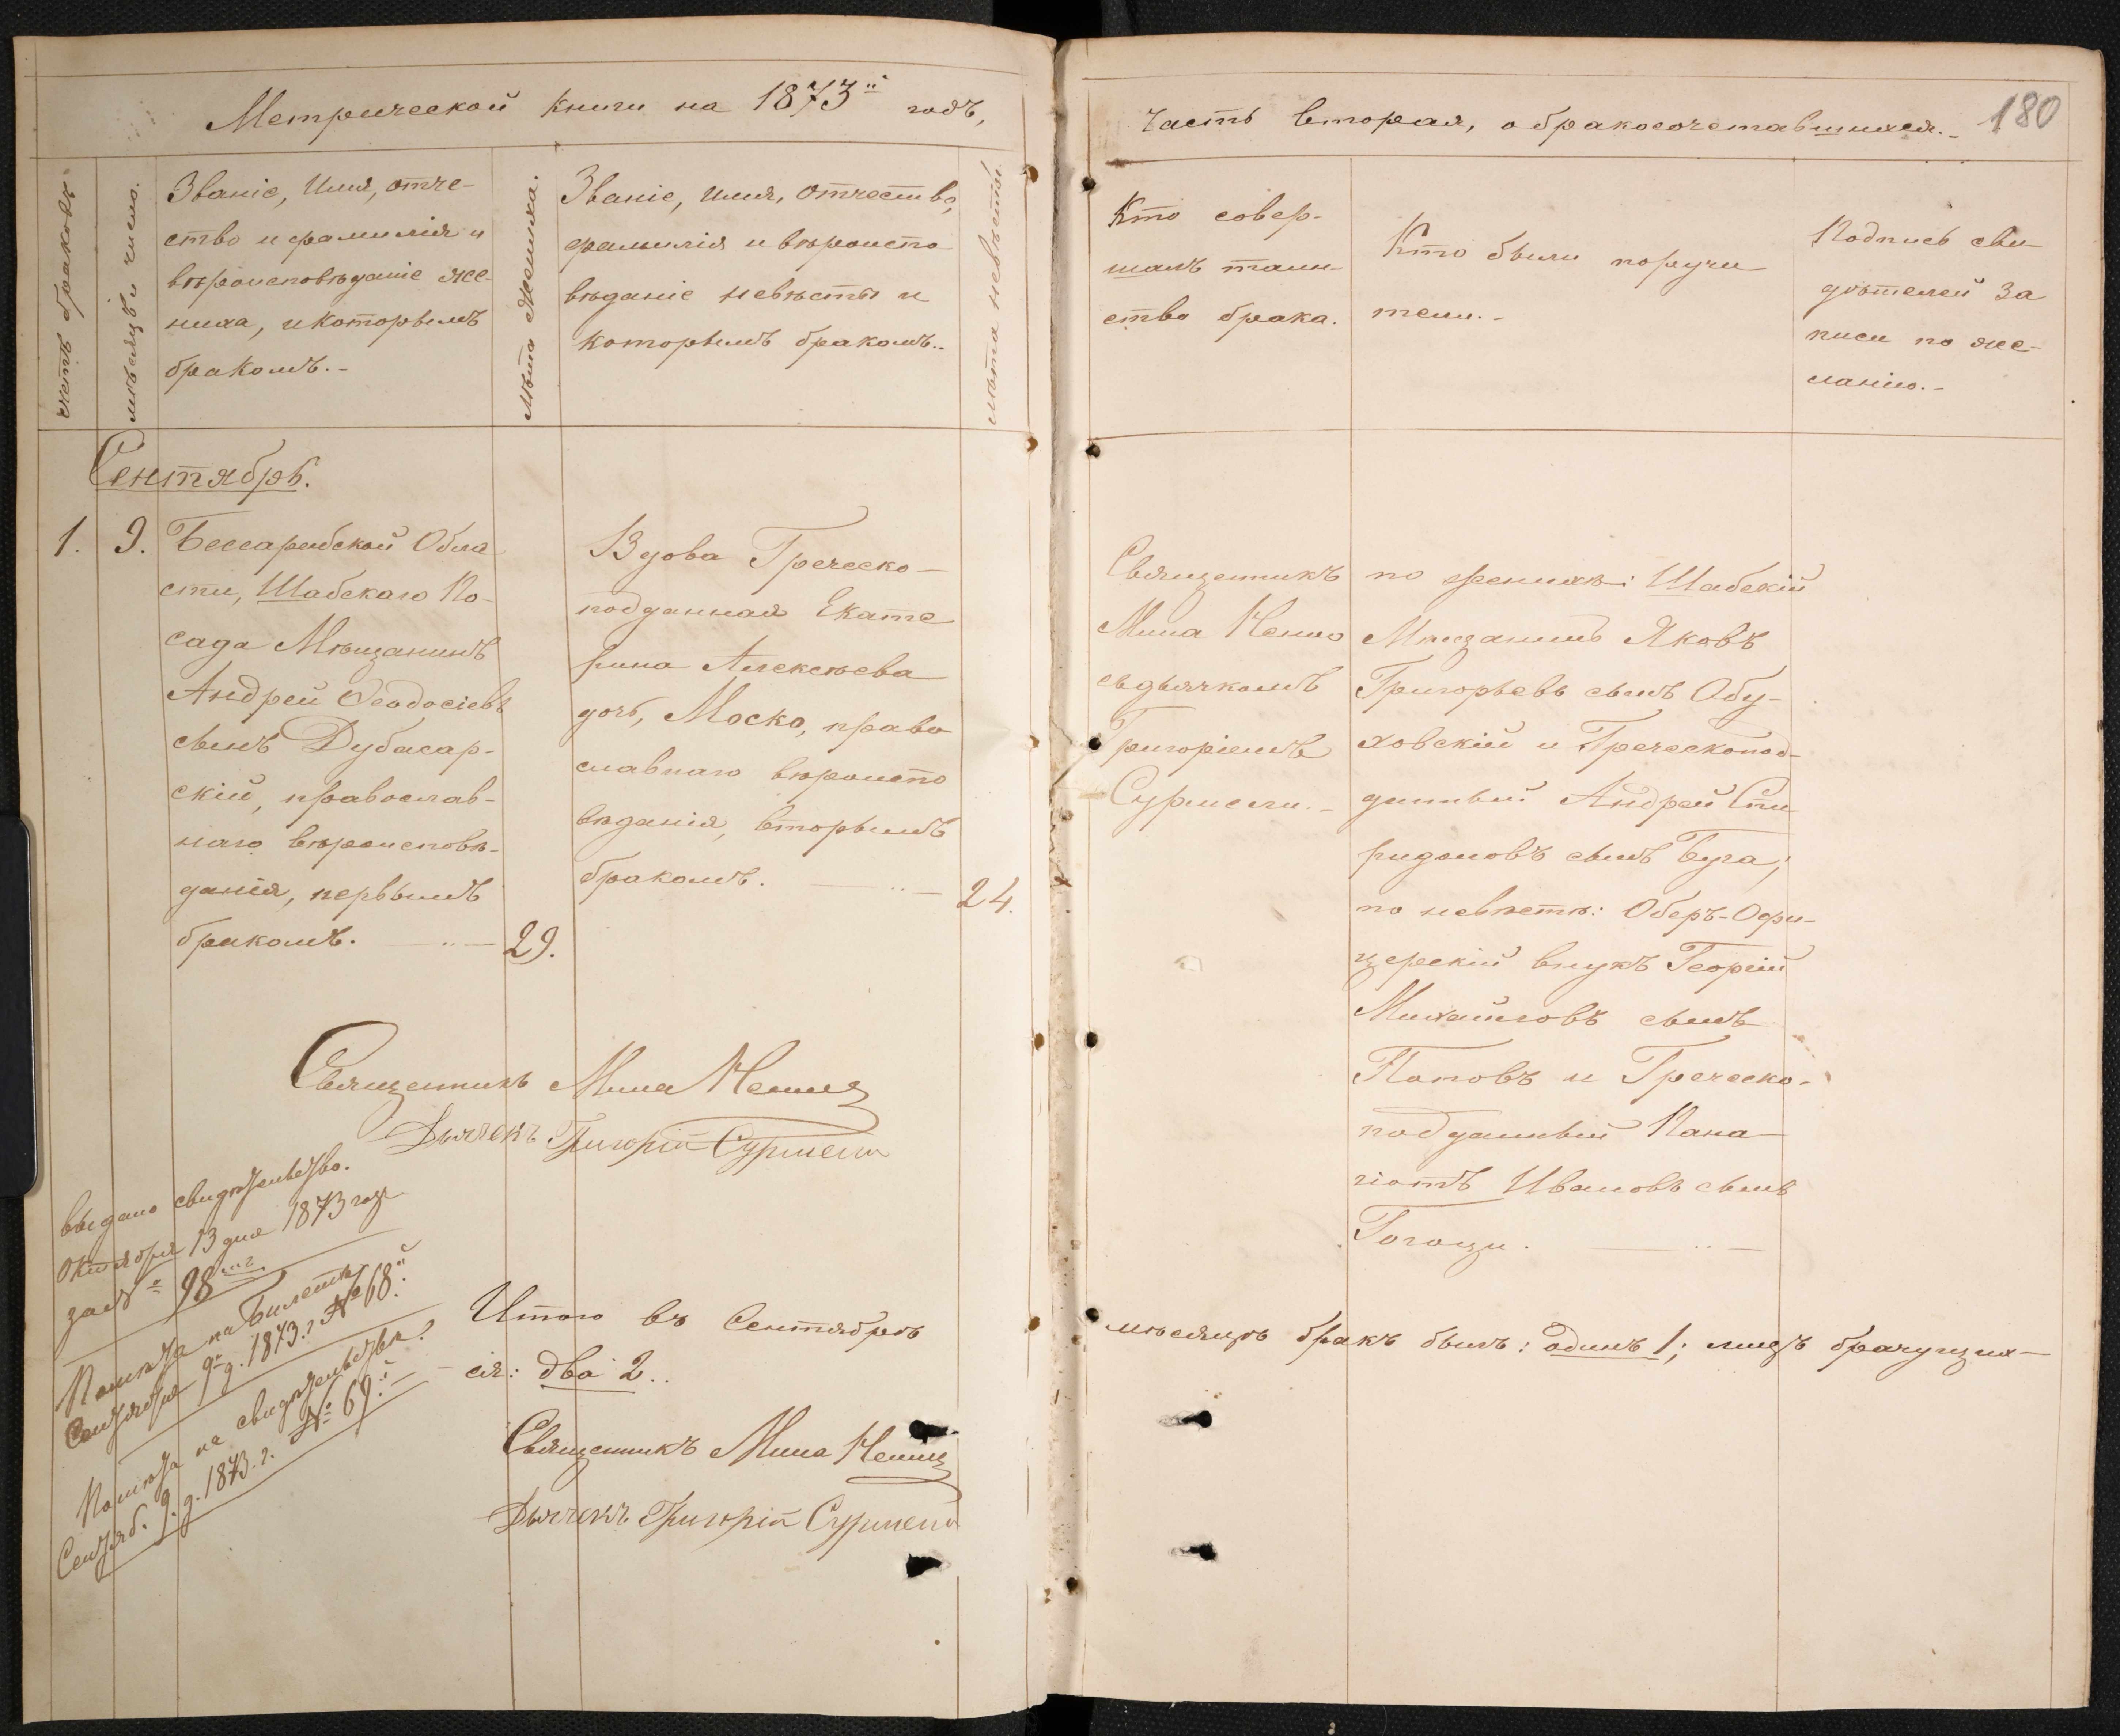 Метрической книги на 1873й годъ,
часть вторая, о бракосочетавшихся.-
180
счетъ браковъ
мѣсяцъ и число.
Званіе, Имя, отче-
ство и фамилія и
вѣроисповѣданіе же-
ниха, и которымъ
бракомъ.-
лѣта жениха.
Званіе, имя, отчество,
фамилія и вѣроиспо
вѣданіе невѣсты и
которымъ бракомъ..
лѣта невѣсты.
Кто совер-
шалъ таин-
ство брака.
Кто были поручи
тели.-
Подпись сви-
дѣтелей за
писи по же-
ланію.-
Сентябрь.
1.
9.
Бессарабской Обла
сти, Шабскаго По-
сада Мѣщанинъ
Андрей Ѳеодосіевъ
сынъ Дубасар-
скій, православ-
наго вѣроисповѣ-
данія, первымъ
бракомъ. — .. —
29.
Вдова Греческо-
подданная Екате
рина Алексѣева
дочь, Моско, право
славнаго вѣроиспо
вѣданія, вторымъ
бракомъ. — .. —
24.
Священникъ
Мина
съ дьячкомъ
Григоріемъ
по женихѣ: Шабскій
Мѣщанинъ Яковъ
Григорьевъ сынъ Обу-
ховскій и Греческопод-
данный Андрей Спи
ридоновъ сынъ Буга;
по невѣстѣ: Оберъ-Офи-
церскій внукъ Георгій
Михайловъ сынъ
Поповъ и Греческо-
подданный Пана-
гіотъ Ивановъ сынъ
Гогоци. — .. —
Священникъ Мина
Дьячекъ Григорій
выдано свидѣтельство.
Октября 13 дня 1873 года
за № 98
Помѣта на билетѣ
Сентября 9 д. 1873 г. № 68.
Помѣта на свидѣтельствѣ.
Сентяб. 9 д. 1873. г. № 69.
Итого въ Сентябрѣ
мѣсяцѣ бракъ былъ: одинъ 1; лицъ брачущих-
ся: два 2..
Священникъ Мина
Дьячекъ Григорій